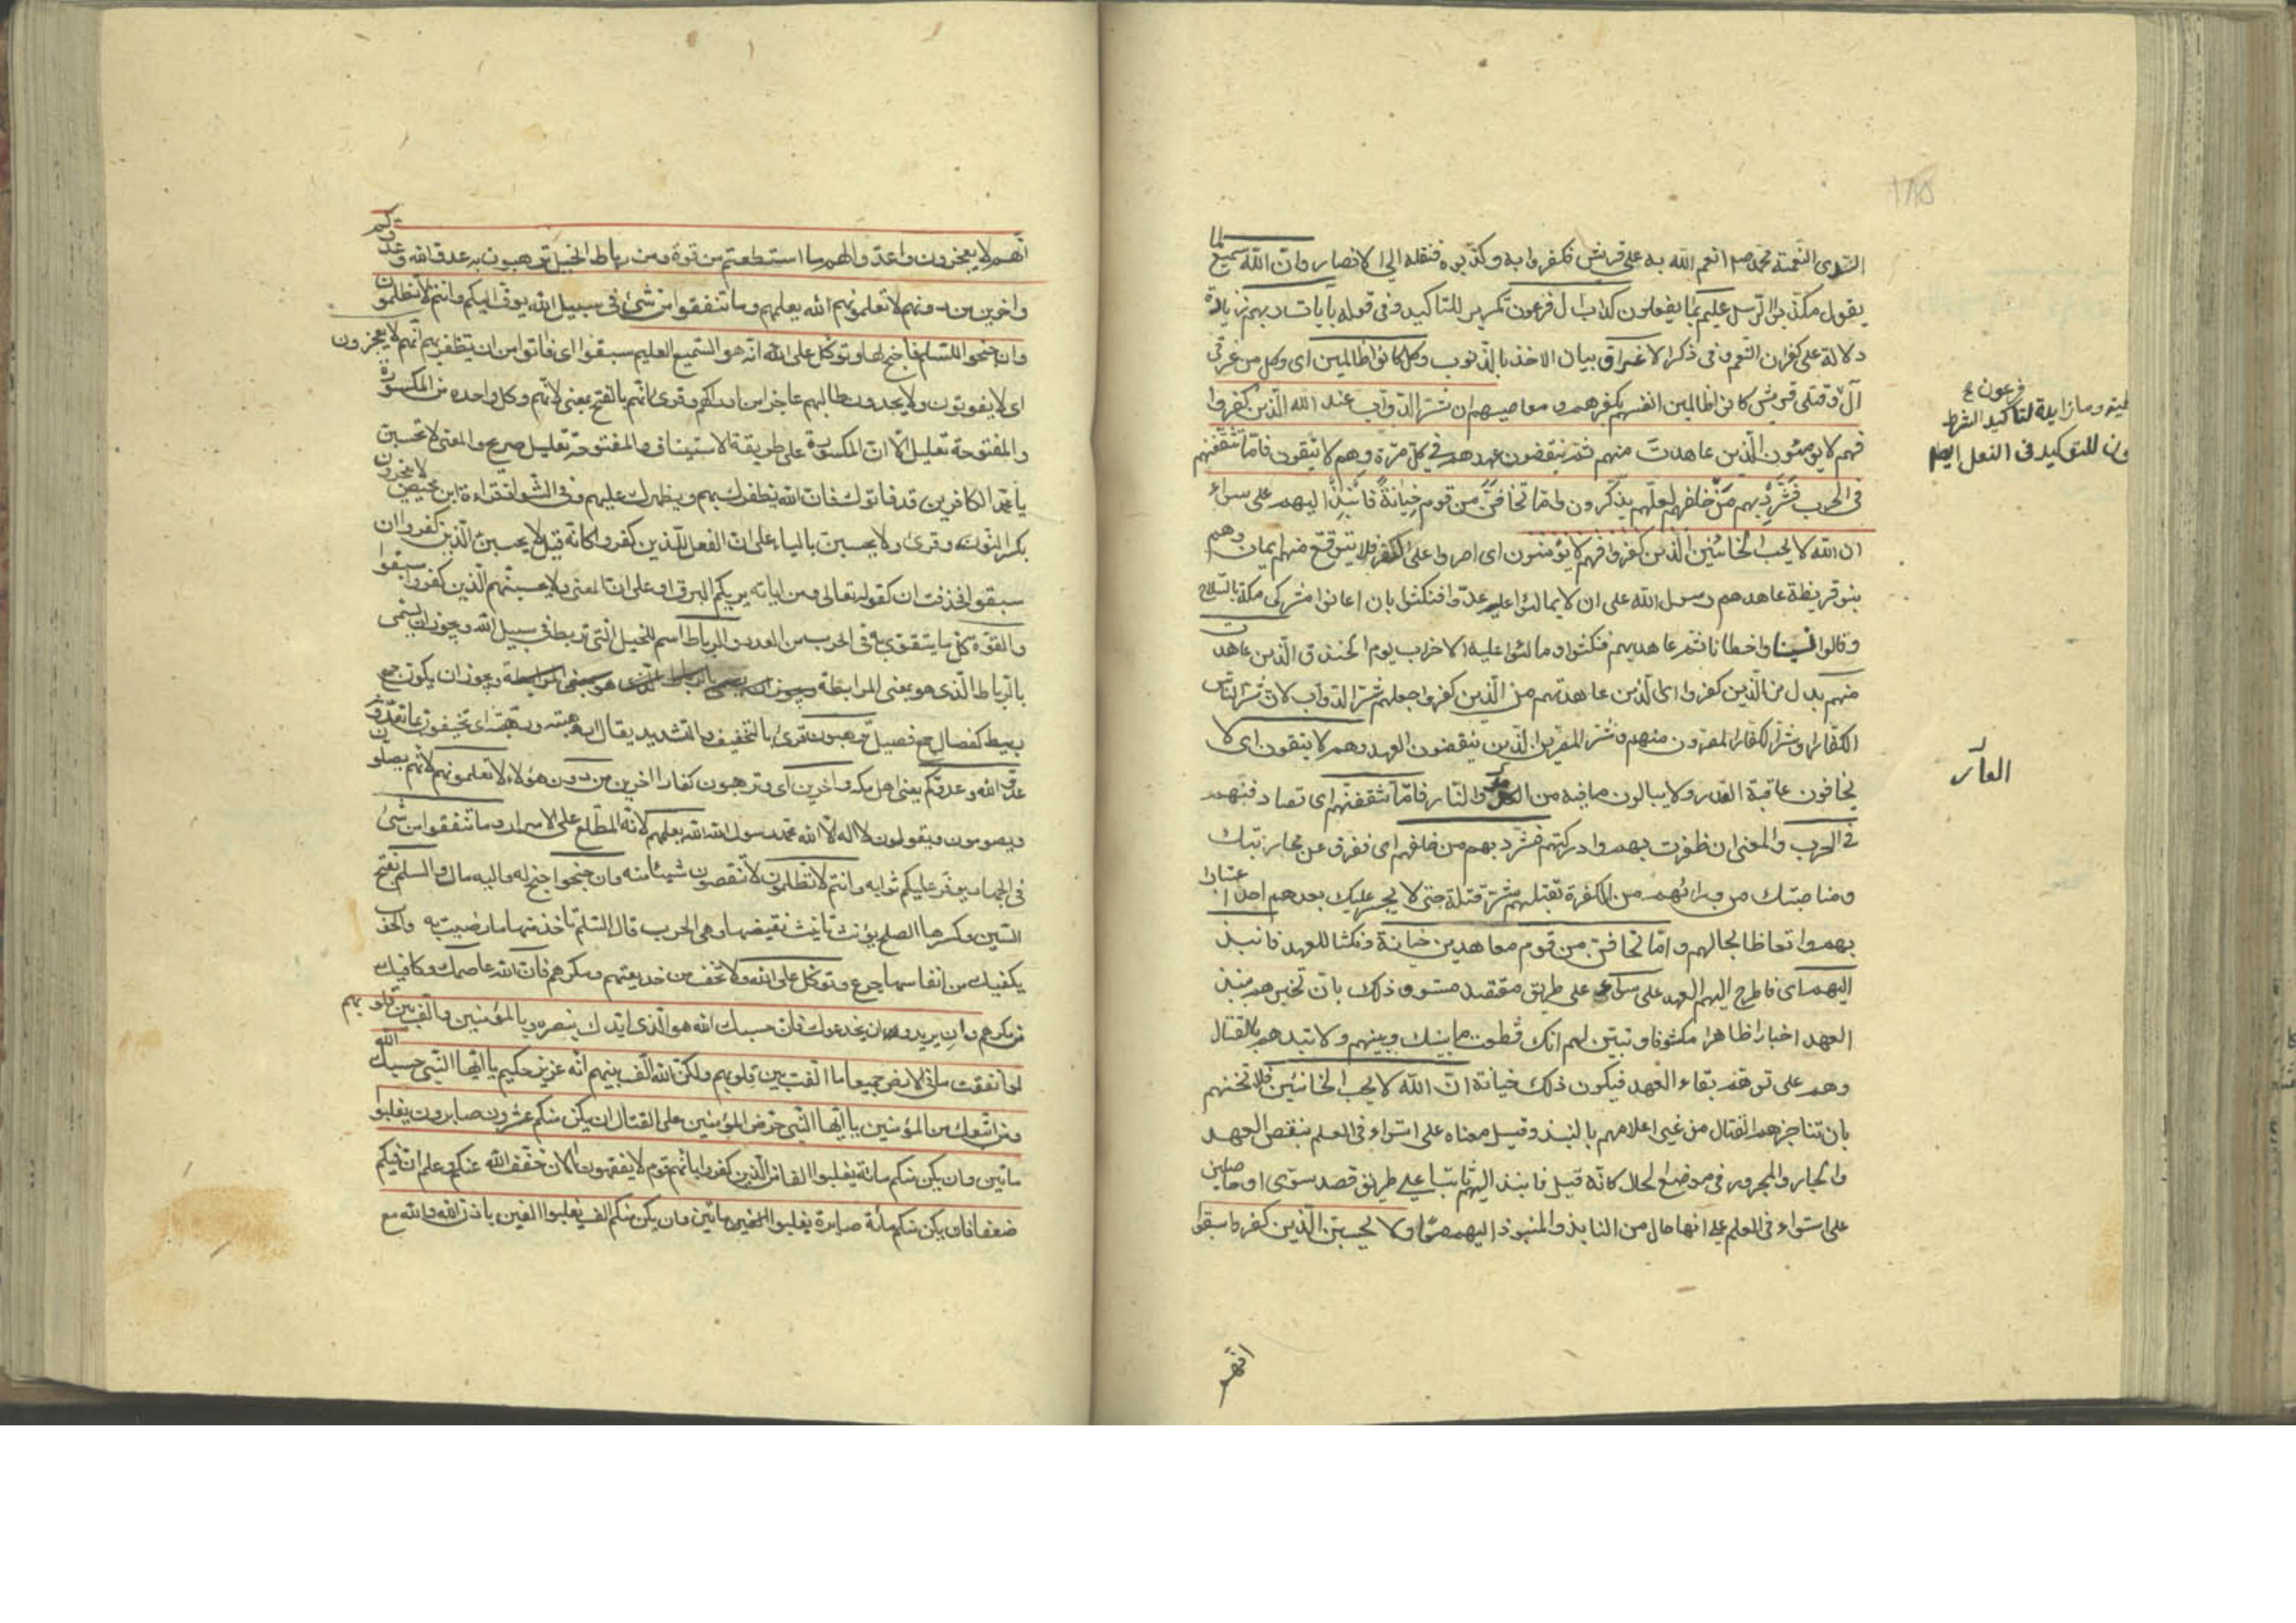 السّدى النّعمة محمّد صم انعم الله به على قريش فكفروا به وكذّبوه فنقله الى الانصار وانّ الله سميع لما
يقول مكذّبوا الرّسل عليم بما يفعلون كداب ال فرعون تكرير للتاكيد وفى قوله بايات ربهم زيادة
دلالة على كفران النّعم وفى ذكر الاغراق بيان الاخذ بالذّنوب وكل كانوا ظالمين اى وكل من غرقى
آل وقتلى قريش كانوا ظالمين انفسهم بكفرهم ومعاصيهم ان شرّ الدّوآب عند الله الّذين كفروا
فهم لا يؤمنون الّذين عاهدتَ منهم ثمّ ينقضون عهدهم فى كل مرّة وهم لا يتّقون فامّا تثقفنهم
فى الحرب فَشَرِّدْ بهم مَنْ خلفهم لعلّهم يذّكّرون وامّا تخافَنّ من قوم خِيانةً فانْبِذْ اليهم على سواء
ان الله لا يحب الخائنين الّذين كفروا فهم لا يؤمنون اى اصروا على الكفر فلا يتوقّع منهم ايمان وهم
بنو قريظة عاهدهم رسول الله على ان لا يمالئوا عليه عدّوا فنكثوا بان اعانوا مشركى مكة بالسّلاح
وقالوا نسينا واخطانا ثم عاهدهم فنكثوا ومالئوا عليه الاحزاب يوم الخندق الّذين عاهدت
منهم بدل من الّذين كفروا اى الّذين عاهدتهم من الّذين كفروا جعلهم شرّ الدّوآب لانّ شرّ النّاس
الكفّار وشرّ الكفّار المصرّون منهم وشرّ المصرّين الّذين ينقضون العهد وهم لا يتقون اى لا
يخافون عاقبة الغدر ولا يبالون ما فيه من والنّار فامّا تثقفنّهم اى تصادفنّهم
فى الحرب والمعنى ان ظفرت بهم وادركتهم فشرّد بهم من خلفهم اى ففرق عن محاربتك
ومناصبتك من ورائهم من الكفرة بقتلهم شرّ قتلة حتى لا يجسر عليك بعدهم احد اعتبارا
بهم واتعاظا بحالهم وامّا تخافنّ من قوم معاهدين خيانة ونكثا للعهد فانبذ
اليهم اى فاطرح اليهم العهد على سوآء على طريق مقتصد مستو وذلك بان تخبرهم بنبذ
العهد اخبارا ظاهرا مكشوفا وتبيّن لهم انك قطعت ما بينك وبينهم ولا تبدهم بالقتال
وهم على توهّم بقاء العهد فيكون ذلك خيانة انّ الله لا يحب الخائنين فلا تخنهم
بان تناجزهم القتال من غير اعلامهم بالنبذ وقيل معناه على استواء فى العلم بنقض العهد
والجار والمجرور فى موضع الحال كانّه قيل فانبذ اليهم ثابتا على طريق قصد سوّى او حاصلين
على استواء فى العلم على انها حال من النابذ والمنبوذ اليهم معًا ولا يحسبنّ الّذين كفروا سبقوا
فرعون ع
ومازايدة لتاكيد الشرط
للتوكيد فى الفعل ايض
العآر
انّهم
انّهم لا يعجزون واعدّوا لهم ما استطعتم من قوة ومن رباط الخيل ترهبون به عدوّ الله وعدوّكم
واخرين من دونهم لا تعلمونهم الله يعلمهم وما تنفقوا من شئ فى سبيل الله يوفّ اليكم وانتم لا تظلمون
وان جنحوا للسّلم فاجنح لها وتوكّل على الله انّه هو السّميع العليم سبقوا اى فاتوا من ان يظفر بهم انّهم لا يعجزون
اى لا يفوتون ولا يجدون طالبهم عاجزا من ادراكهم وقرئ انّهم بالفتح بمعنى لانّهم وكل واحدة من المكسورة
والمفتوحة تعليل الّا انّ المكسورة على طريقة الاستيناف والمفتوحة تعليل صريح والمعنى لا تحسبنّ
يا محمّد الكافرين قد فاتوك فانّ الله يظفرك بهم ويظهرك عليهم وفى الشّواذ قراءة ابن محيصن لا يعجزون
بكسر النّون وقرئ ولا يحسبنّ بالياء على انّ الفعل للّذين كفروا كانّه قيل لا يحسبنّ الّذين كفروا ان
سبقوا فحذفت ان كقوله تعالى ومن اياته يريكم البرق او على انّ المعنى ولا يحسبنّهم الّذين كفروا سبقوا
والقوّة كل ما يتقوّى به فى الحرب من العدد والرباط اسم للخيل الّتى تربط فى سبيل الله ويجوز ان يسمى
بالرّباط الّذى هو بمعنى المرابطة ويجوز ان يكون جمع
ربيط كفصال جمع فصيل ترهبون قرئ بالتخفيف والتشديد يقال ارهبته ورهّبته اى تخيفون بما تعدّون
عدوّ الله وعدوّكم يعنى اهل مكة واخرين اى وترهبون كفارا اخرين من دون هؤلاء لا تعلمونهم لانّهم يصلون
ويصومون ويقولون لا اله الّا الله محمّد رسول الله الله يعلمهم لانّه المطّلع على الاسرار وما تنفقوا من شئ
فى الجهاد يوفّر عليكم ثوابه وانتم لا تظلمون لا تنقصون شيئا منه وان جنحوا جنح له واليه مال والسلم بفتح
السّين وكسرها الصلح يؤنث تانيث نقيضها وهى الحرب قال السّلم تاخذ منها ما رضيت به والحرب
يكفيك من انفاسها جرع وتوكّل على الله ولا تخف من خديعتهم ومكرهم فانّ الله عاصمك وكافيك
من مكرهم وان يريدوا ان يخدعوك فانّ حسبك الله هو الّذى ايّدك بنصره وبالمؤمنين والّف بين قلوبهم
لو انفقت ما فى الارض جميعا ما الّفت بين قلوبهم ولكنّ الله الّف بينهم انّه عزيز حكيم يا ايّها النّبى حسبك الله
ومن اتّبعك من المؤمنين يا ايّها النّبى حرّض المؤمنين على القتال ان يكن منكم عشرون صابرون يغلبوا
مائتين وان يكن منكم مائة يغلبوا الفا من الّذين كفروا بانّهم قوم لا يفقهون الان خفّف الله عنكم وعلم انّ فيكم
ضعفا فان يكن منكم مائة صابرة يغلبوا مائتين وان يكن منكم الف يغلبوا الفين باذن الله والله مع